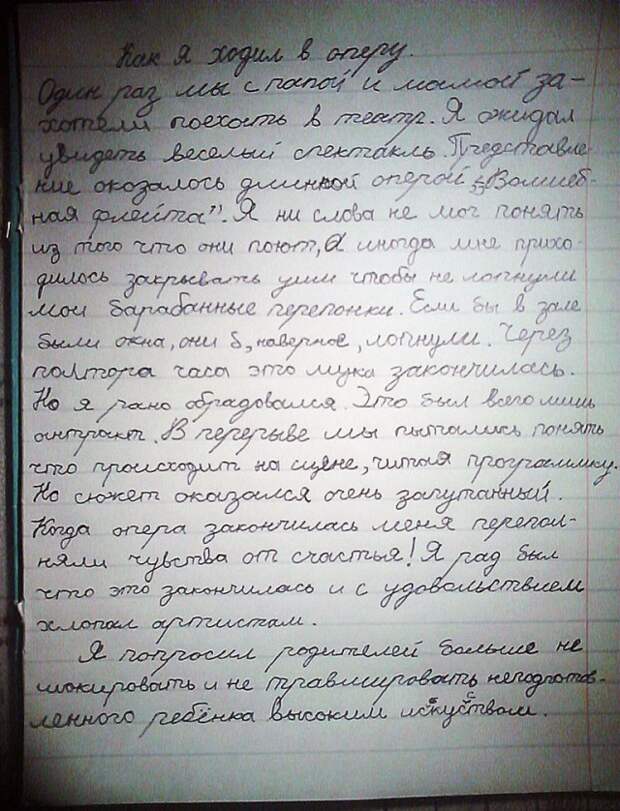 Как я ходил в оперу.
Один раз мы с папой и мамой за-
хотели поехать в театр. Я ожидал
увидеть веселый спектакль. Представле-
ние оказалось длинной оперой „Волшеб-
ная флейта". Я ни слова не мог понять
из того что они поют, а иногда мне прихо-
дилось закрывать уши чтобы не лопнули
мои барабанные перепонки. Если бы в зале
были окна, они б, наверное, лопнули. Через
полтора часа это мука закончилась.
Но я рано обрадовался. Это был всего лишь
антракт. В перерыве мы пытались понять
что происходит на сцене, читая программку.
Но сюжет оказался очень запутанный.
Когда опера закончилась меня перепол-
няли чувства от счастья! Я рад был
что это закончилась и с удовольствием
хлопал артистам.
Я попросил родителей больше не
шокировать и не травмировать неподготов-
ленного ребёнка высоким искусством.